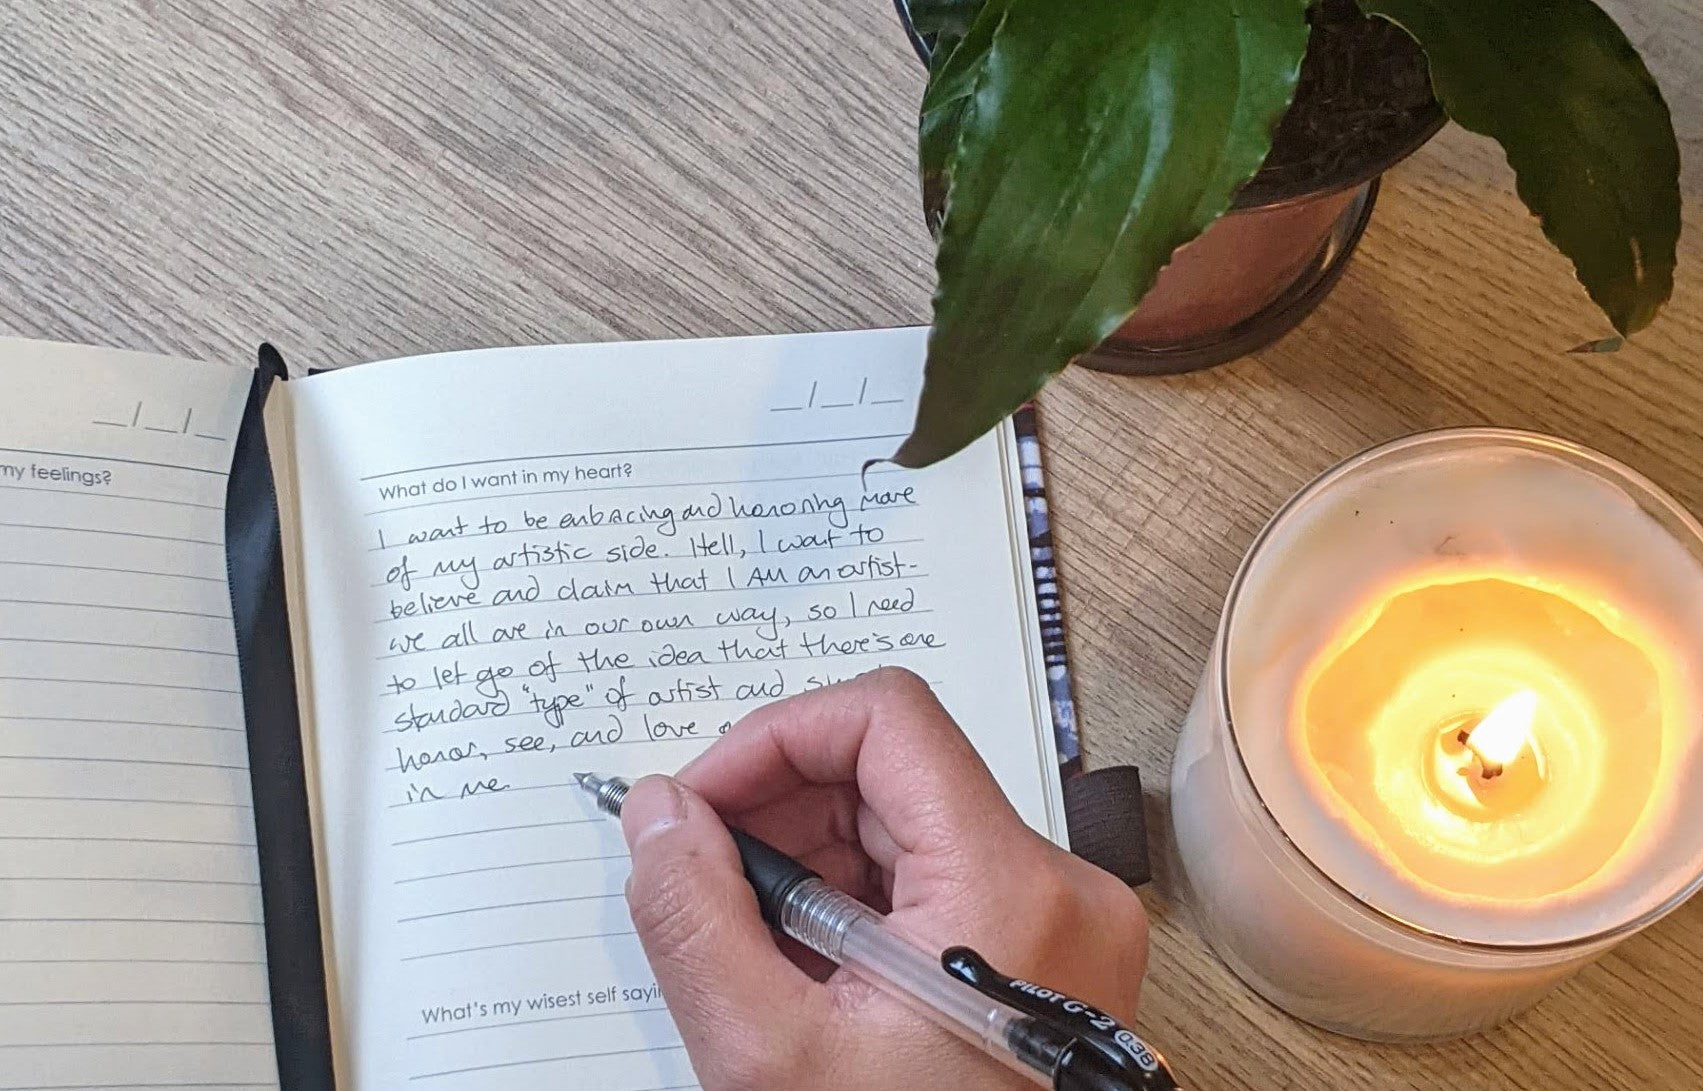 _/_/_
my feelings?
_/_/_
What do I want in my heart?
I want to be embracing and honoring more
of my artistic side. Hell, I want to
believe and claim that I AM an artist-
we all are in our own way, so I need
to let go of the idea that there's one
standard "type" of artist and
honor, see, and love
in me.
What's my wisest self
PILOT G-2 0.38